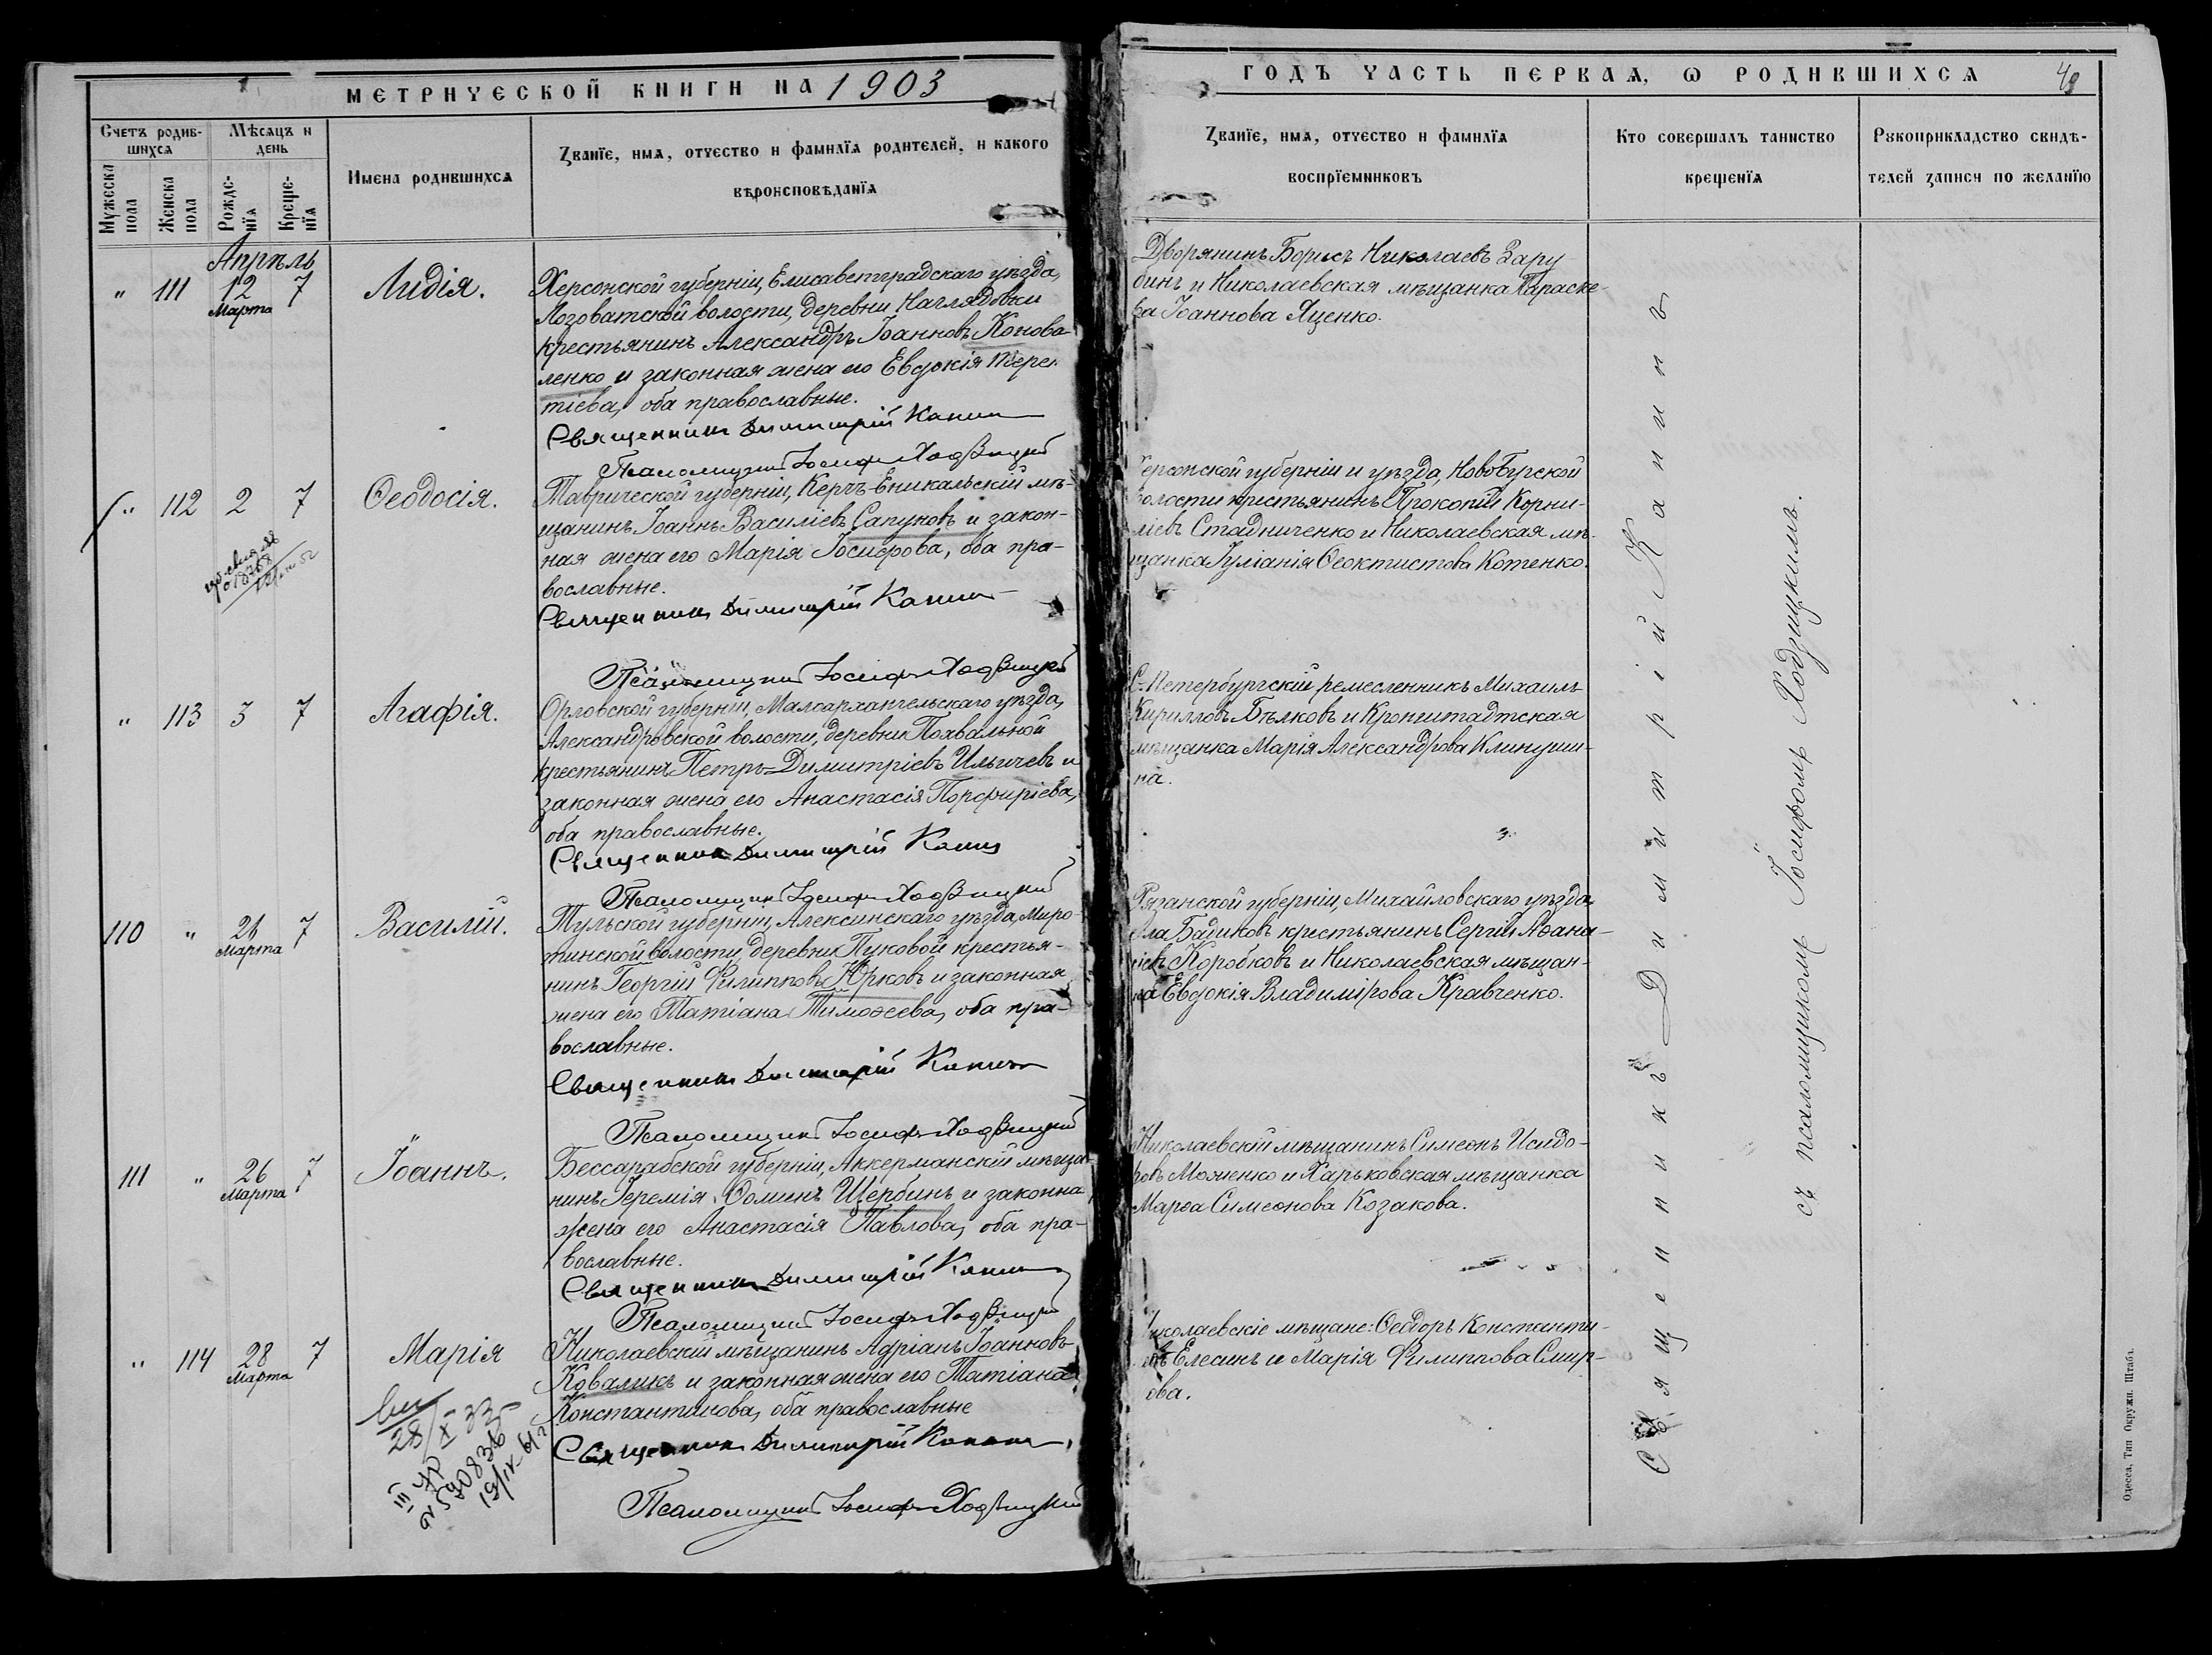 МЕТРИЧЕСКОЙ КНИГИ НА 1903
Счетъ родив-
шихся
Мѣсяцъ и
день
Мужеска
пола
Женска
пола
Рожде-
нїя
Креще-
нїя
Имена родившихся
Званїе, имя, отчество и фамилїя родителей, и какого
вѣроисповѣданїя
Апрѣль
" 111 12 7
Марта
Лидія.
Херсонской губерніи, Елисаветградскаго уѣзда,
Лозоватской волости, деревни Наглядовки
крестьянинъ Александръ Іоанновъ Конова-
ленко и законная жена его Евдокія Терен
тіева, оба православные.
Священникъ Димитрій Капинъ
Псаломщикъ Іосифъ Ходзицкій
" 112 2 7
Ѳеодосія.
Таврической губерніи, Керчь-Еникальскій мѣ-
щанинъ Іоаннъ Василіевъ Сапуновъ и закон-
ная жена его Марія Іосифова, оба пра-
вославные.
Священникъ Димитрій Капинъ
Псаломщикъ Іосифъ Ходзицкій
" 113 3 7
Агафія.
Орловской губерніи, Малоархангельскаго уѣзда,
Александровской волости, деревни Похвальной
крестьянинъ Петръ Димитріевъ Ильичевъ и
законная жена его Анастасія Порфиріева,
оба православные.
Священникъ Димитрій Капинъ
Псаломщикъ Іосифъ Ходзицкій
110 " 26 7
Марта
Василій.
Тульской губерніи, Алексинскаго уѣзда, Миро-
тинской волости, деревни Пуковой крестья-
нинъ Георгій Филипповъ Юрковъ и законная
жена его Татіана Тимоѳеева, оба пра-
вославные.
Священникъ Димитрій Капинъ
Псаломщикъ Іосифъ Ходзицкій
111 " 26 7
Марта
Іоаннъ.
Бессарабской губерніи, Аккерманскій мѣща-
нинъ Іеремія Ѳоминъ Щербинъ и законна
жена его Анастасія Павлова, оба пра-
вославные.
Священникъ Димитрій Капинъ
Псаломщикъ Іосифъ Ходзицкій
" 114 28 7
Марта
Марія
28/X 33
Николаевскій мѣщанинъ Адріанъ Іоанновъ
Коваликъ и законная жена его Татіана
Константинова, оба православные
Священникъ Димитрій Капинъ
Псаломщикъ Іосифъ Ходзицкій
ГОДЪ ЧАСТЬ ПЕРВАЯ, Ѡ РОДИВШИХСЯ
Званїе, имя, отчество и фамилїя
воспрїемниковъ
Кто совершалъ таинство
крещенїя
Рукоприкладство свидѣ-
телей записи по желанїю
Дворянинъ Борисъ Николаевъ Зару
бинъ и Николаевская мѣщанка Параске
ва Іоаннова Яценко.
Херсонской губерніи и уѣзда, НовоБугской
волости крестьянинъ Прокопій Корни-
ліевъ Стадниченко и Николаевская мѣ-
щанка Іуліанія Ѳеоктистова Котенко.
С-Петербургскій ремесленникъ Михаилъ
Кирилловъ Бѣлковъ и Кронштадтская
мѣщанка Марія Александрова Клинуши-
на.
Рязанской губерніи, Михайловскаго уѣзда,
села Бадиковъ крестьянинъ Сергій Аѳана-
сіевъ Коробковъ и Николаевская мѣщан-
ка Евдокія Владимірова Кравченко.
Николаевскій мѣщанинъ Симеонъ Исидо-
ровъ Моженко и Харьковская мѣщанка
Марѳа Симеонова Козакова.
Николаевскіе мѣщане: Ѳеодоръ Константи-
новъ Елесинъ и Марія Филиппова Смир-
нова.
Священникъ Димитрій Капинъ
съ псаломщикомъ Іосифомъ Ходзицкимъ.
Одесса, Тип Окружн. Штаба.